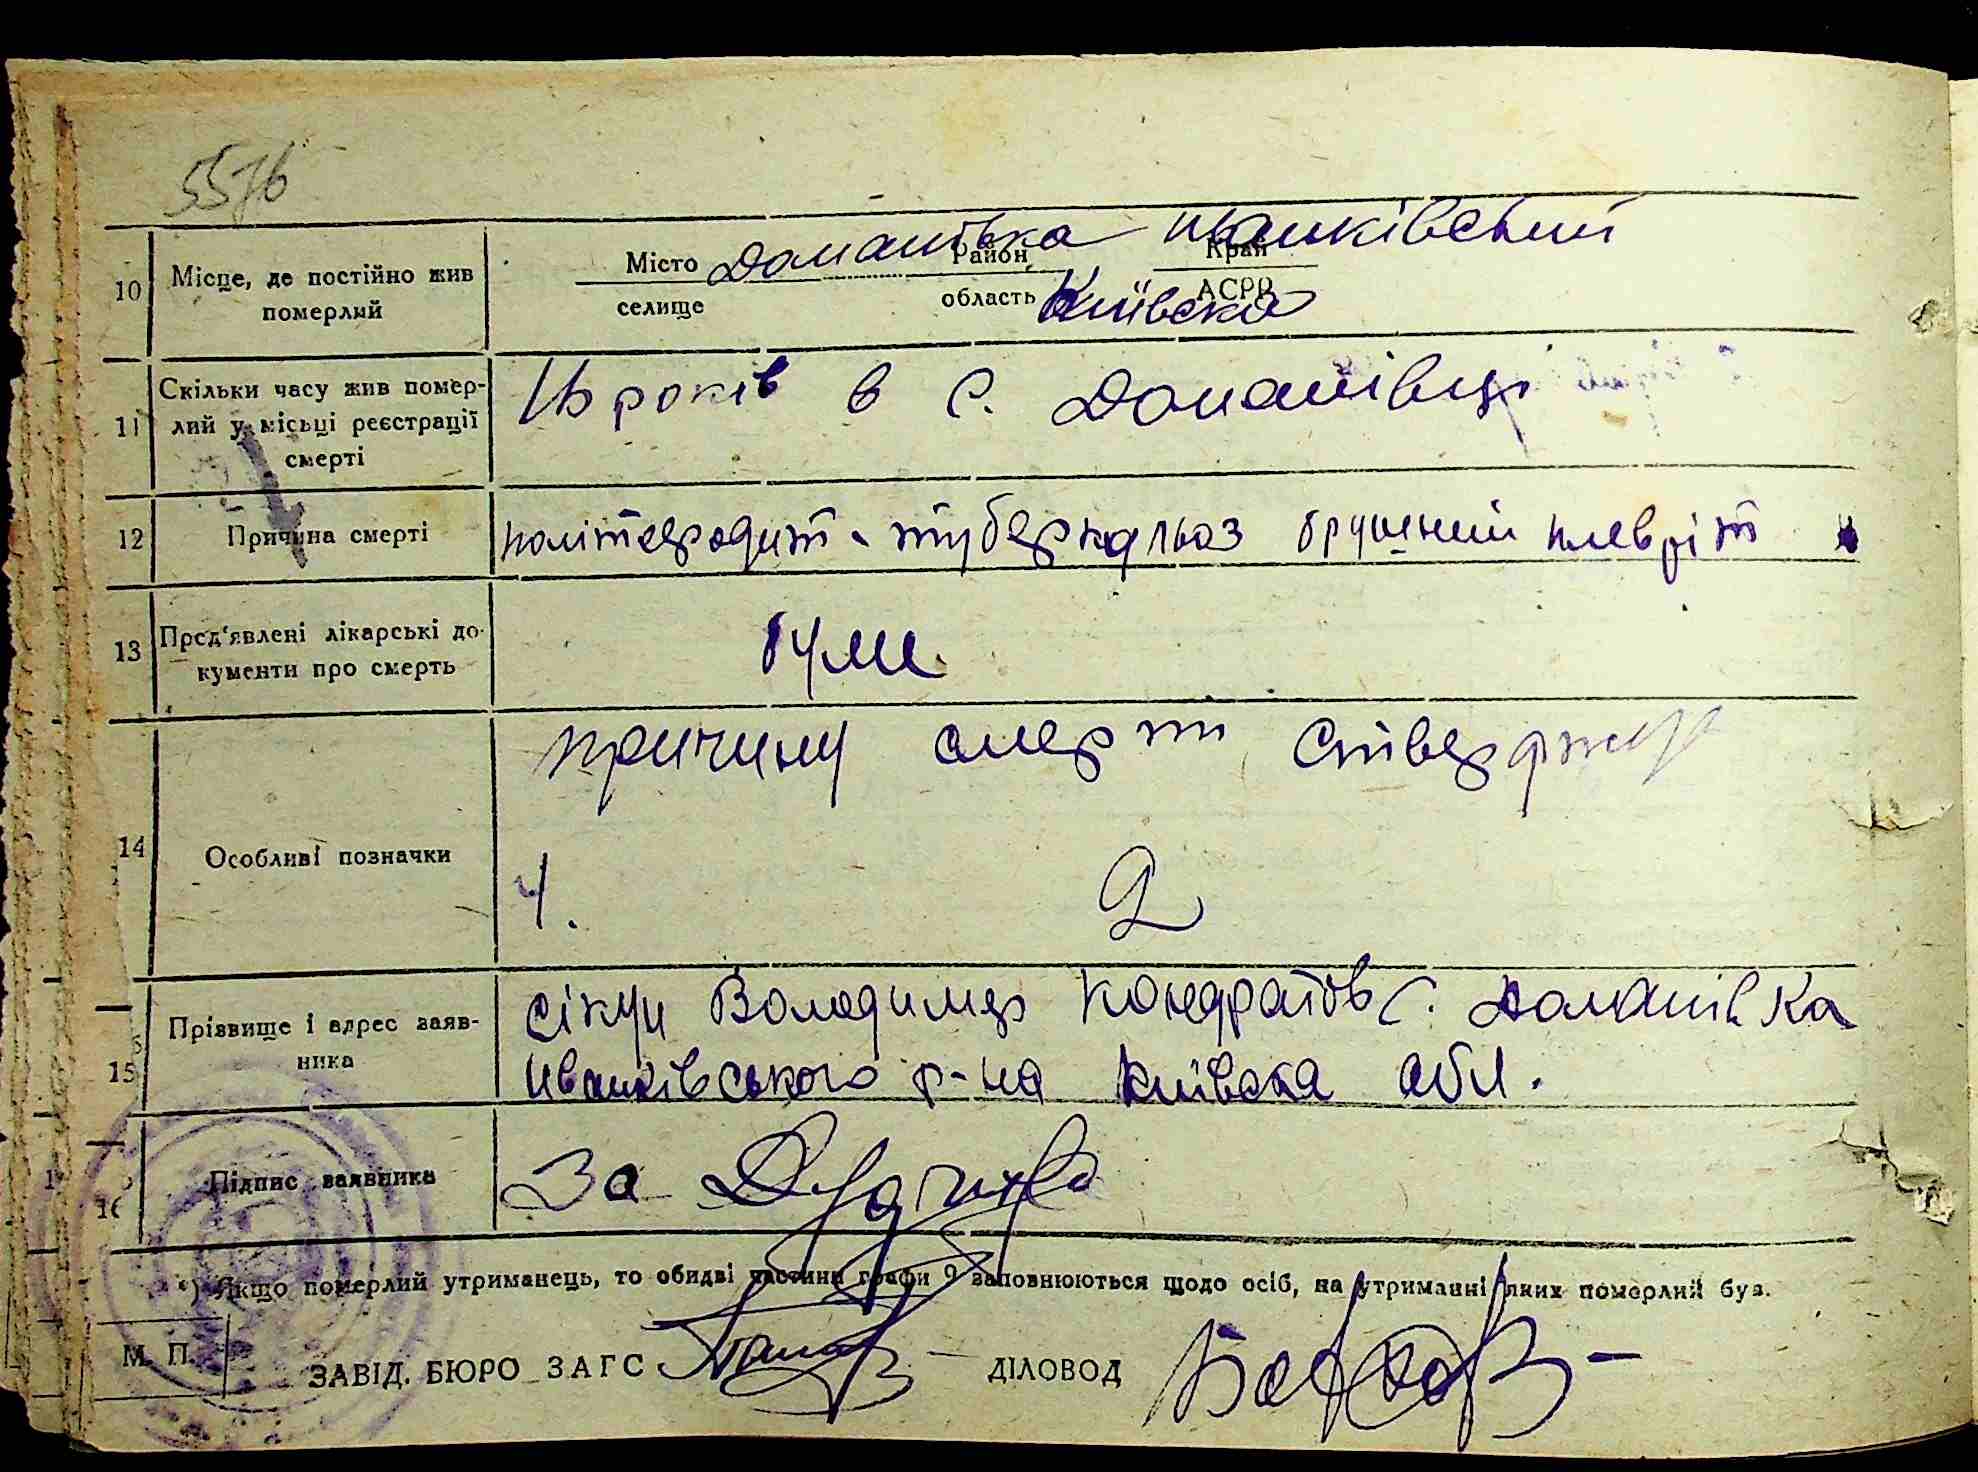 5576
10 Місце, де постійно жив померлий
Місто Доманівка Район Иванківський Край
селище область Київска АСРР
11 Скільки часу жив помер-
лий у місьці реєстрації
смерті
16 років в с. Доманівці
12 Причина смерті
туберкальоз брушний плевріт
13 Пред'явлені лікарські до-
кументи про смерть
14 Особливі позначки
причину смерти стверджую
4. 2
15 Прізвище і адрес заяв-
ника
Сікун Володимер Кондратов с. Доманівка
Иванківського р-на Київска обл.
16 Підпис заявника
За
*) Якщо померлий утриманець, то обидві частини графи 9 заповнюються щодо осіб, на утриманні яких померлий був.
М. П.
ЗАВІД. БЮРО ЗАГС ДІЛОВОД